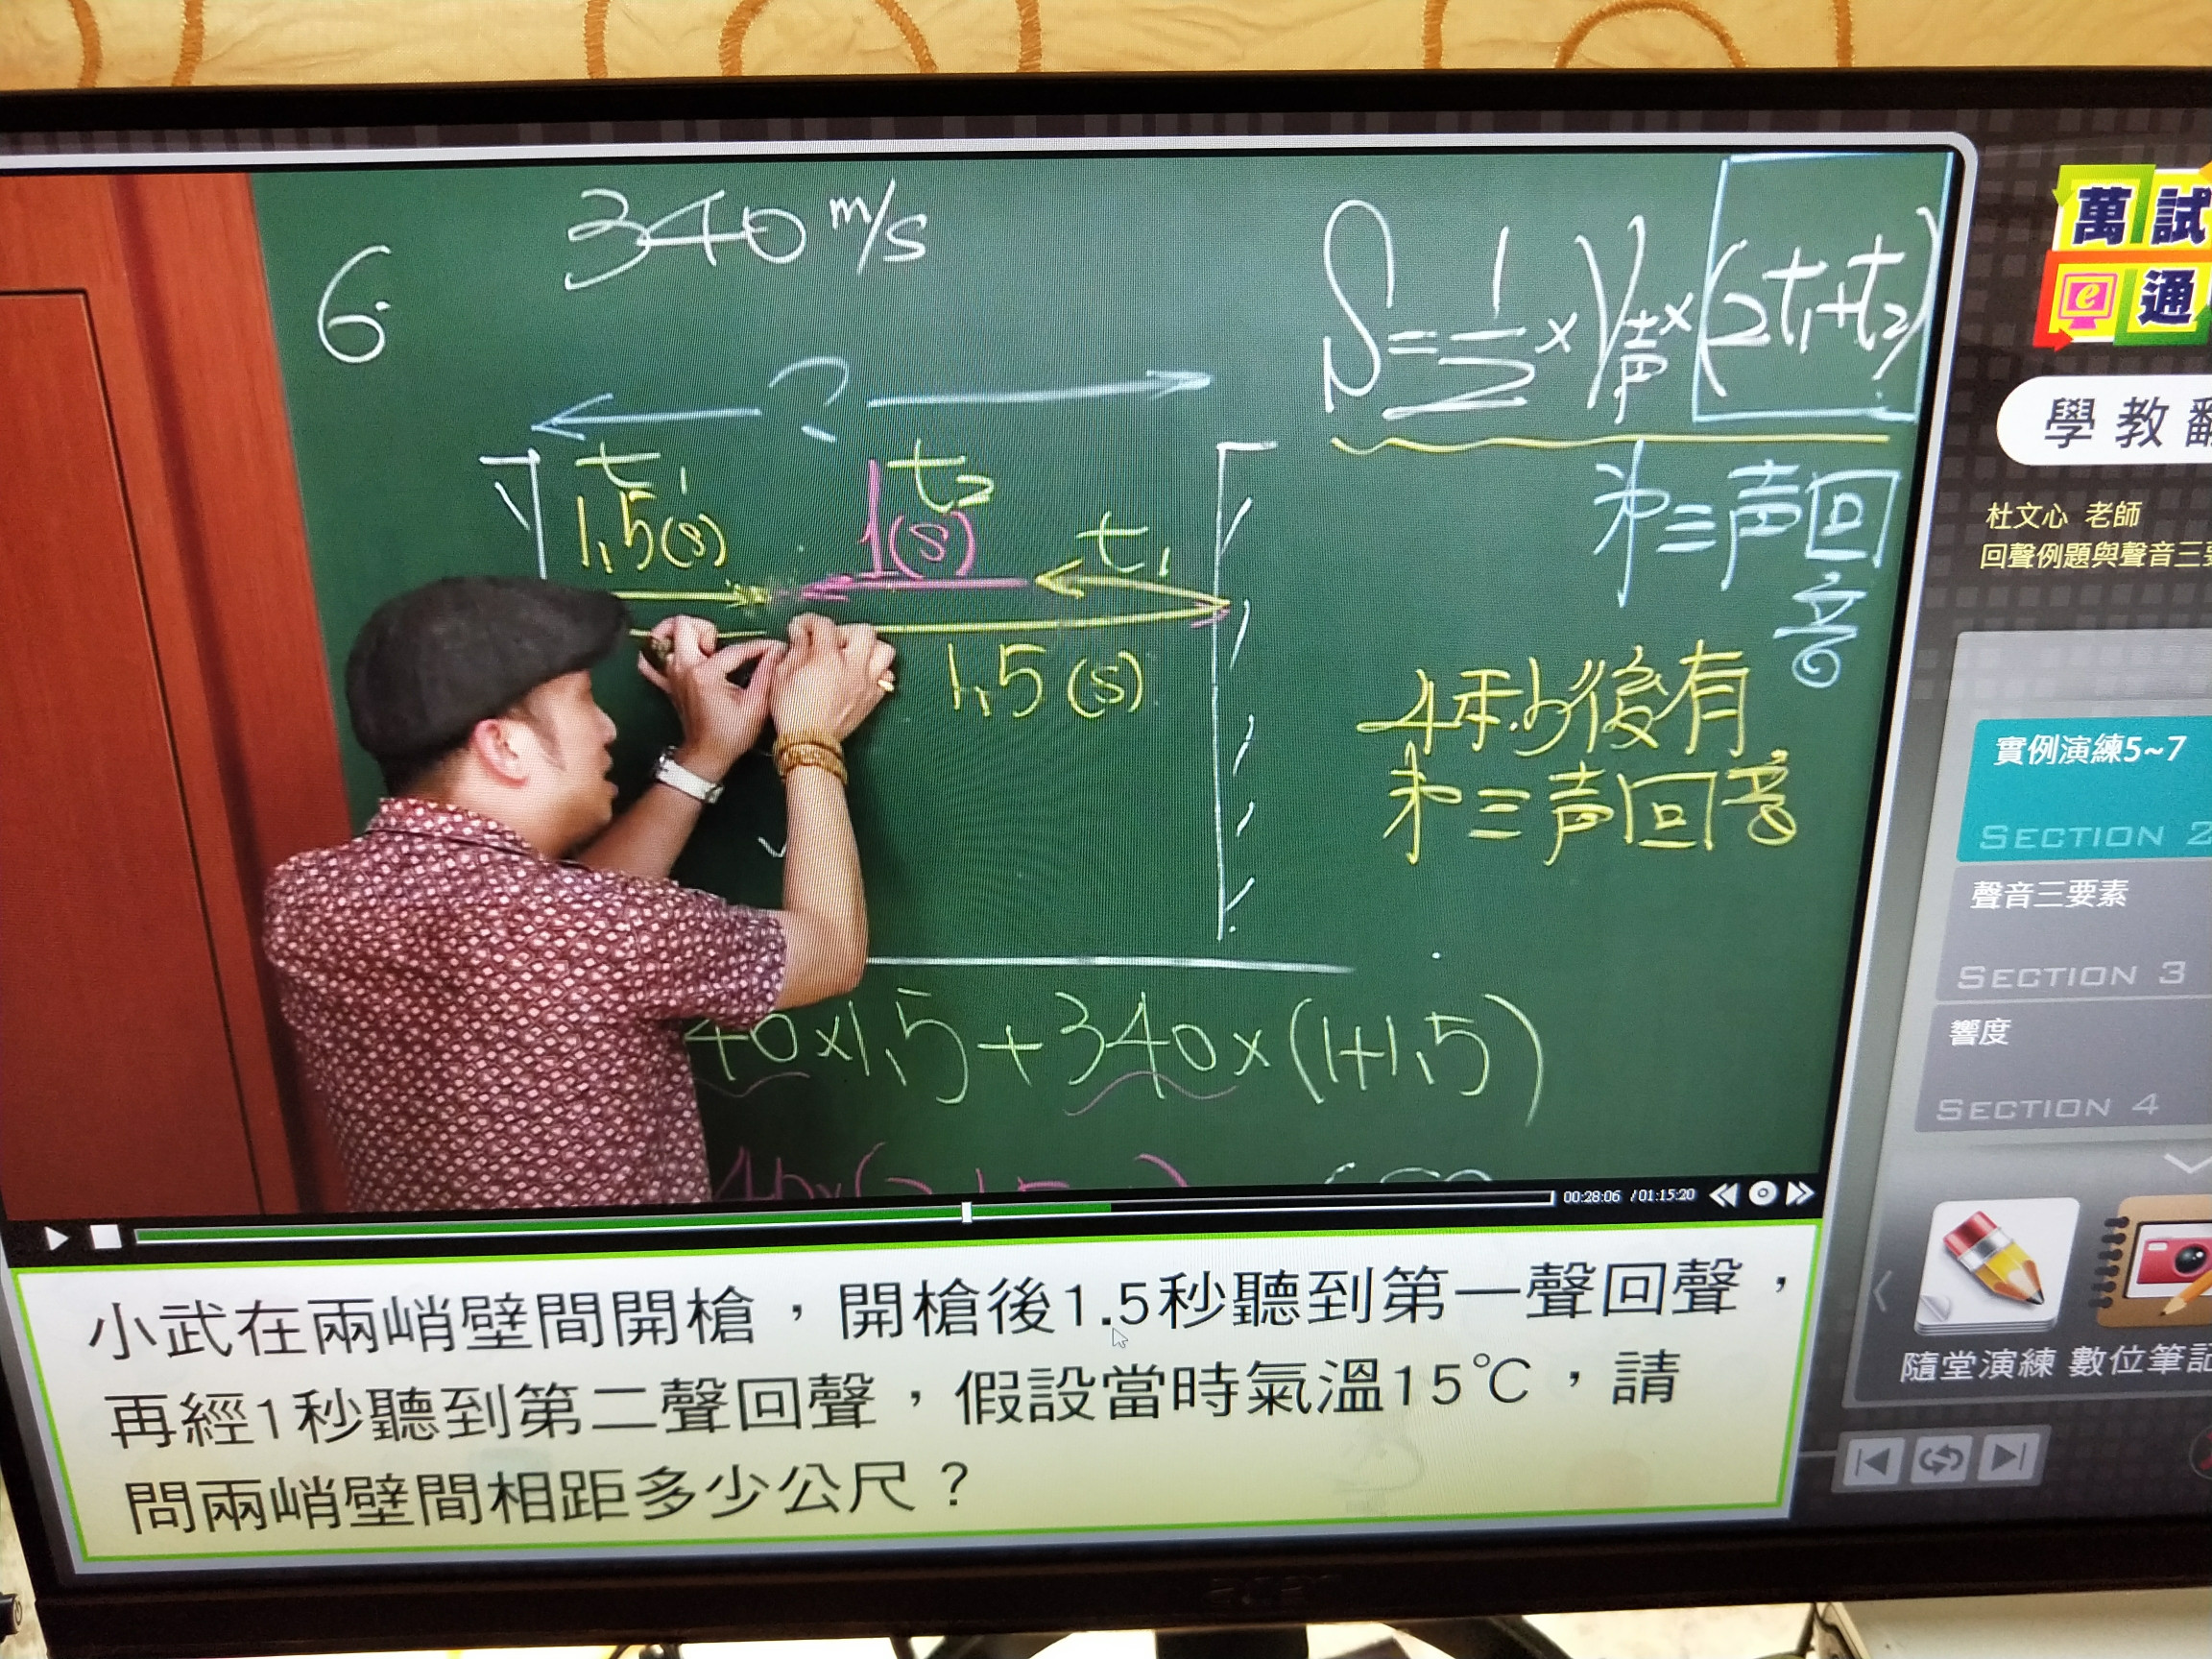 6.
340 m/s
S=1/2×V声×(2t₁+t₂)
?
t₁
1.5(s)
t₂
1(s)
t₁
1.5(s)
第三声回音
4秒後有
第三声回音
40×1.5+340×(1+1.5)
00:28:06 /01:15:20
小武在兩峭壁間開槍，開槍後1.5秒聽到第一聲回聲，
再經1秒聽到第二聲回聲，假設當時氣溫15℃，請
問兩峭壁間相距多少公尺？
萬試
e通
學教翻
杜文心 老師
回聲例題與聲音三要
實例演練5~7
SECTION 2
聲音三要素
SECTION 3
響度
SECTION 4
隨堂演練 數位筆記
acer